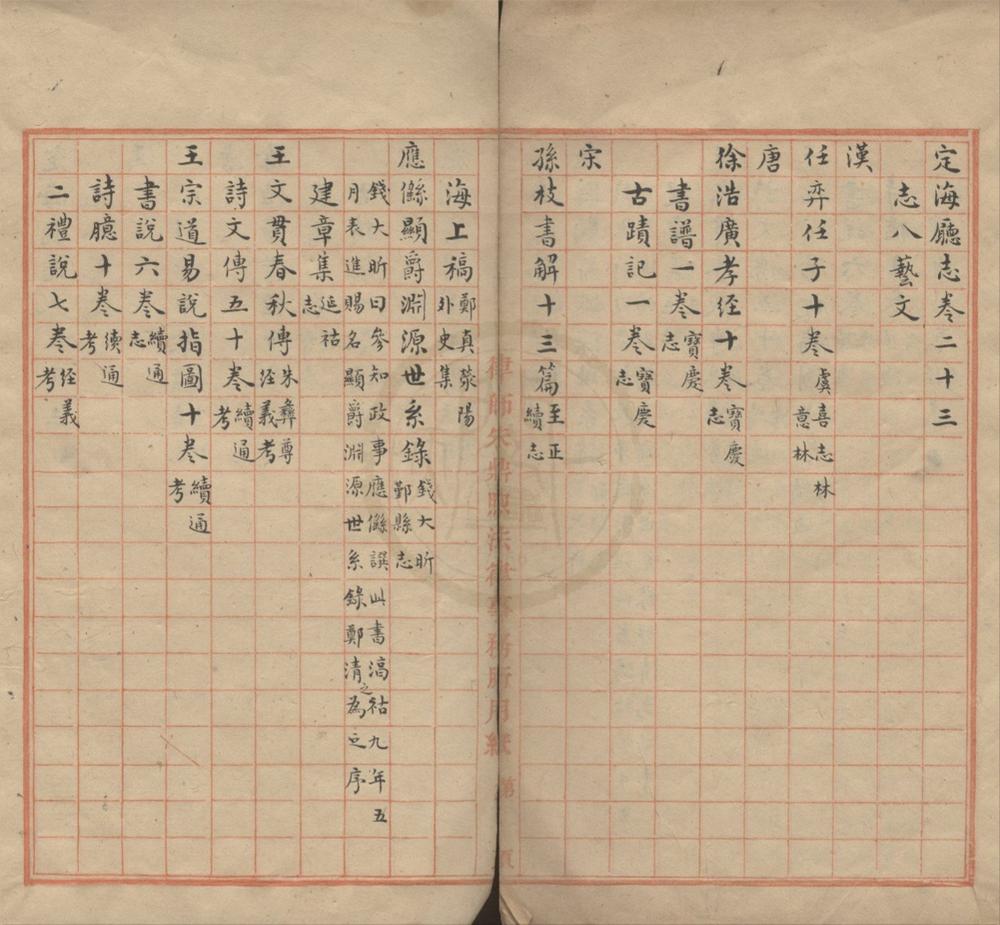 定海廳志卷二十三
志八藝文
漢
任弈任子十卷虞喜志林意林
唐
徐浩廣孝经十卷寶慶志
書譜一卷寶慶志
古蹟記一卷寶慶志
宋
孫枝書解十三篇至正續志
律師朱鼎煦法律事務所用紙 第 頁
海上稿鄭真滎陽外史集
應㒡顯爵淵源世系錄錢大昕鄞縣志
錢大昕曰參知政事應㒡譔此書湻祐九年五
月表進賜名顯爵淵源世系錄鄭清之為之序
建章集延祐志
王文貫春秋傳朱彝尊经義考
詩文傳五十卷續通考
王宗道易說指圖十卷續通考
書說六卷續通志
詩臆十卷續通考
二禮說七卷经義考